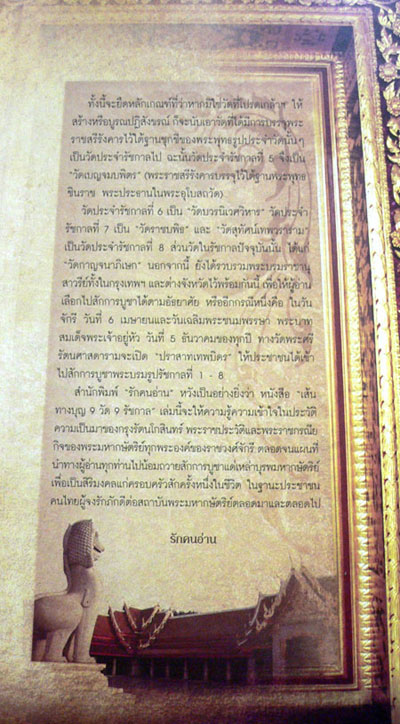 ทั้งนี้จะยึดหลักเกณฑ์ที่ว่าหากมิใช่วัดที่โปรดเกล้าฯ ให้
สร้างหรือบูรณปฏิสังขรณ์ ก็จะนับเอาวัดที่ได้มีการบรรจุพระ
ราชสรีรังคารไว้ใต้ฐานชุกชีของพระพุทธรูปประจำวัดนั้นๆ
เป็นวัดประจำรัชกาลไป ฉะนั้นวัดประจำรัชกาลที่ 5 จึงเป็น
"วัดเบญจมบพิตร" (พระราชสรีรังคารบรรจุไว้ใต้ฐานพระพุทธ
ชินราช พระประธานในพระอุโบสถวัด)
วัดประจำรัชกาลที่ 6 เป็น "วัดบวรนิเวศวิหาร" วัดประจำ
รัชกาลที่ 7 เป็น "วัดราชบพิธ" และ "วัดสุทัศน์เทพวราราม"
เป็นวัดประจำรัชกาลที่ 8 ส่วนวัดในรัชกาลปัจจุบันนั้น ได้แก่
"วัดกาญจนาภิเษก" นอกจากนี้ ยังได้รวบรวมพระบรมราชานุ
สาวรีย์ทั้งในกรุงเทพฯ และต่างจังหวัดไว้พร้อมกันนี้ เพื่อให้ผู้อ่าน
เลือกไปสักการบูชาได้ตามอัธยาศัย หรืออีกกรณีหนึ่งคือ ในวัน
จักรี วันที่ 6 เมษายนและวันเฉลิมพระชนมพรรษา พระบาท
สมเด็จพระเจ้าอยู่หัว วันที่ 5 ธันวาคมของทุกปี ทางวัดพระศรี
รัตนศาสดารามจะเปิด "ปราสาทเทพบิดร" ให้ประชาชนได้เข้า
ไปสักการบูชาพระบรมรูปรัชกาลที่ 1 - 8
สำนักพิมพ์ "รักคนอ่าน" หวังเป็นอย่างยิ่งว่า หนังสือ "เส้น
ทางบุญ 9 วัด 9 รัชกาล" เล่มนี้จะให้ความรู้ความเข้าใจในประวัติ
ความเป็นมาของกรุงรัตนโกสินทร์ พระราชประวัติและพระราชกรณีย
กิจของพระมหากษัตริย์ทุกพระองค์ของราชวงศ์จักรี ตลอดจนแผนที่
นำทางผู้อ่านทุกท่านไปน้อมถวายสักการบูชาแด่เหล่าบุรพมหากษัตริย์
เพื่อเป็นสิริมงคลแก่ครอบครัวสักครั้งหนึ่งในชีวิต ในฐานะประชาชน
คนไทยผู้จงรักภักดีต่อสถาบันพระมหากษัตริย์ตลอดมาและตลอดไป
รักคนอ่าน